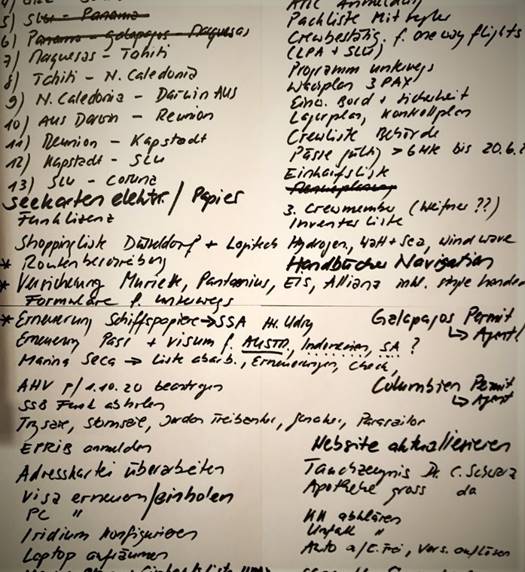 5) SLU - Panama
6) Panama - Galapagos - Marquesas
7) Marquesas - Tahiti
8) Tahiti - N. Caledonia
9) N. Caledonia - Darwin AUS
10) Aus Darwin - Reunion
11) Reunion - Kapstadt
12) Kapstadt - SLU
13) SLU - Coruna
Seekarten elektr. / Papier
Funklizenz
Shoppingliste Düsseldorf + Logitech
* Routenbeschreibung
* Versicherung Murette, Pantaenius, EIS, Allianz inkl.
Formulare f. unterwegs
* Erneuerung Schiffspapiere → SSA Hr. Udry
Erneuerung Pass + Visum f. AUSTR, Indonesien, SA ?
Marina Seca → Liste abarb., Erneuerungen, Check,
AHV p/1.10.20 beantragen
SSB Funk abholen
Trysail, Sturmsegel, Jordan Treibanker, Genaker, Parasailor
EPRIB anmelden
Adresskartei überarbeiten
Visa erneuern/einholen
PC "
Iridium konfigurieren
Laptop aufräumen
Anmeldung
Packliste Mitsegler
Crewbestätig. f. one way flights
(LPA + SLU)
Programm unterwegs
3 PAX
Einw. Bord + Sicherheit
Lagerplan, Kontrollplan
Crewliste Behörde
Pässe gültig > 6 Mt bis 20.6.2
Einkaufsliste
3. Crewmember (??)
Inventar Liste
Hydrogen, Watt + Sea, wind wave
Handbücher Navigation
Galapagos Permit
↳ Agent
Columbien Permit
↳ Agent
Website aktualisieren
Tauchzeugnis Dr. C.
Apotheke gross da
KK abklären
Unfall "
Auto a/E. Frei, Vers. auflösen